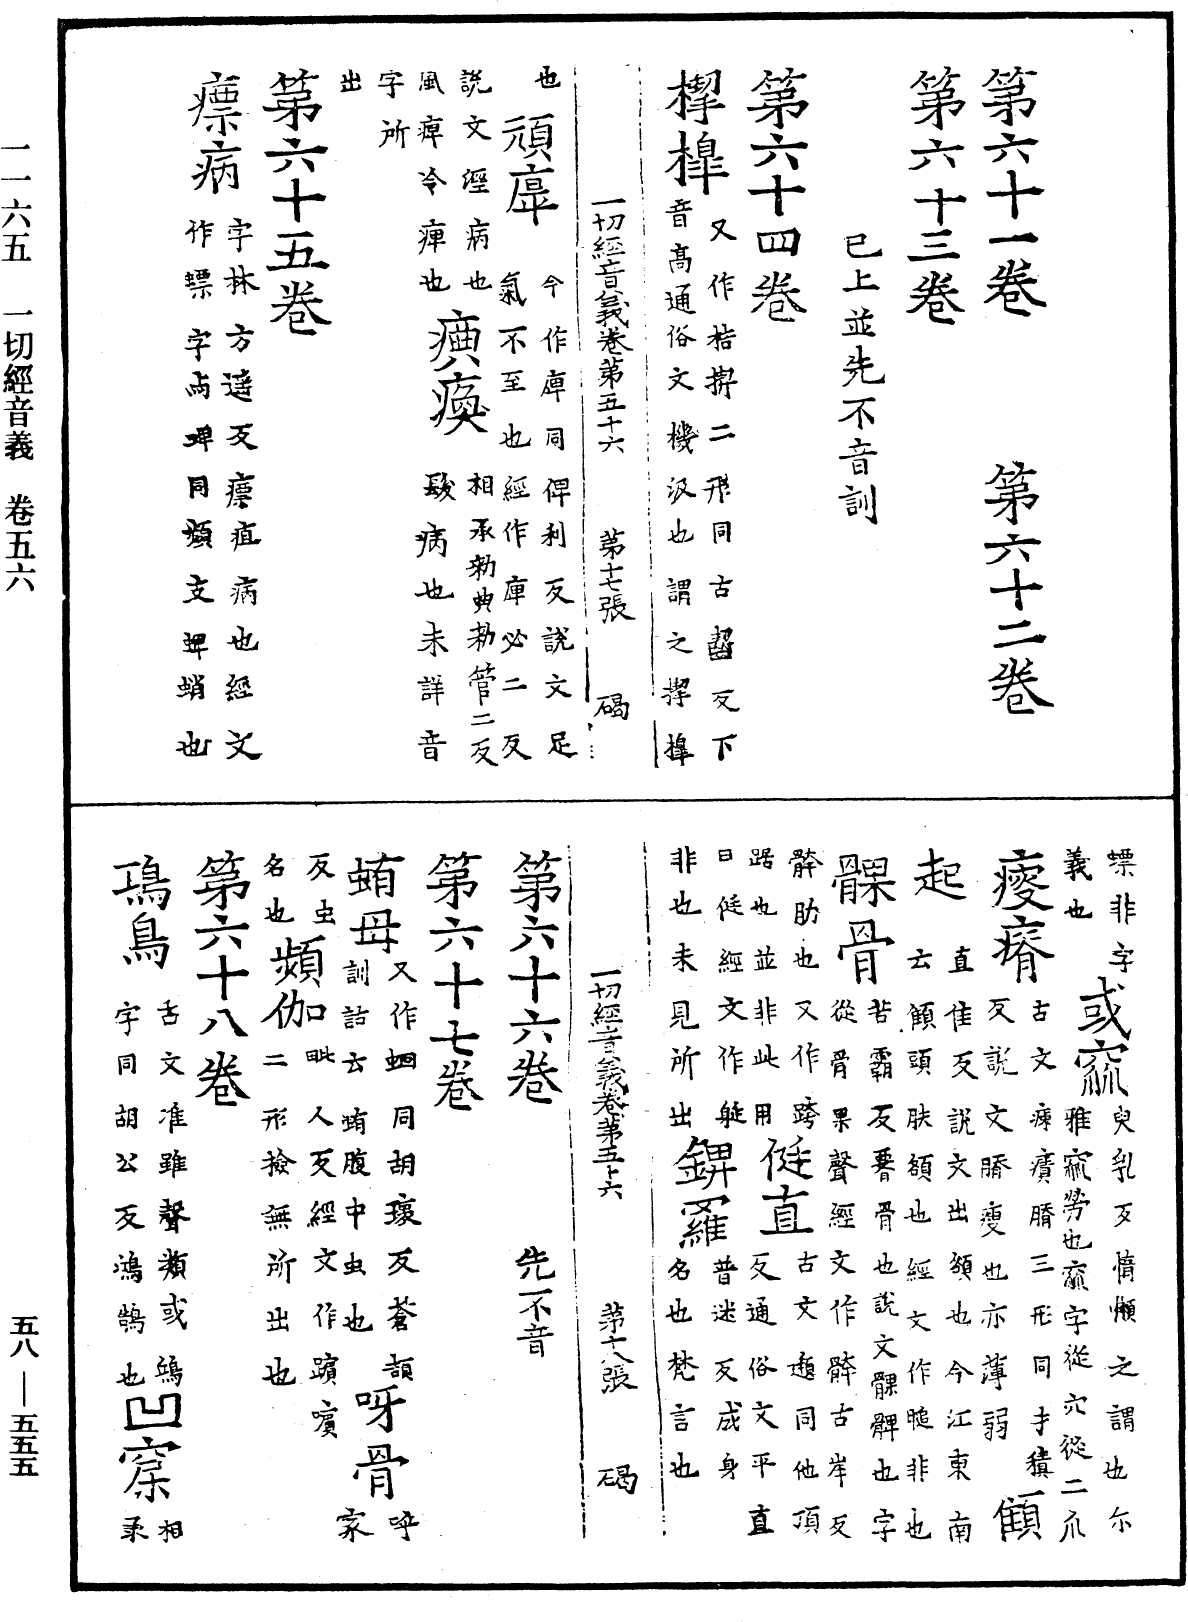 第六十一卷　第六十二卷
第六十三卷
已上並先不音訓
第六十四卷
槔 又作桔㮮二形同古齧反下
音高通俗文機汲也謂之
一切經音義卷第五十六　第十七張　碣
也 頑痺 今作庳同俾利反說文足
氣不至也經作庫必二反
說文經病也 瘨瘓 相承勑典勑管二反
風痺冷痺也 病也未詳音
字所
出
第六十五卷
瘭病 字林方遥反瘭疽病也經文
作螵字与蜱同頻支蜱蛸也
螵非字
義也 或窳 臾乳反惰懶之謂也尒
雅窳勞也窳字從穴從二爪
瘦瘠 古文㾊三形同才積
反說文瘦也亦薄弱 顀
起 直隹反說文出頟也今江東南
云顀頭胅額也經文作䭔非也
髁骨 苦霸反骨也說文髁髀也字
從骨果聲經文作髂古岸反
骭肋也又作跨 古文頲同他頂
踞也並非此用 侹直 反通俗文平直
曰侹經文作艇 普迷反成身
非也未見所出 錍羅 名也梵言也
一切經音義卷第五十六　第十八張　碣
第六十六卷　先不音
第六十七卷
蛕母 又作蛔同胡瓌反蒼頡
訓詁云蛕腹中虫也 呀骨 呼家
反虫
名也 頻伽 毗人反經文作
二形撿無所出也
第六十八卷
鳥 古文准雖聲類或鴻
字同胡公反鴻鵠也 凹窊 相承
一一六五　一切經音義　卷五六
五八——五五五